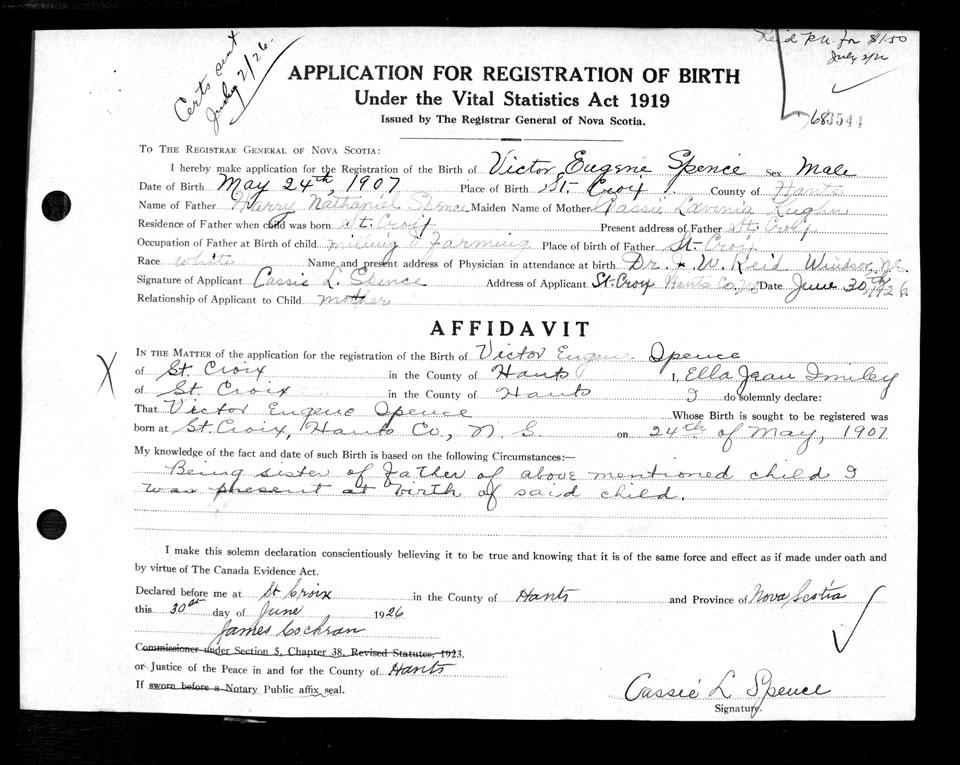 Certs sent
July 2/26.
Rec'd P.N. for $1.50
July 2/26
683544
APPLICATION FOR REGISTRATION OF BIRTH
Under the Vital Statistics Act 1919
Issued by The Registrar General of Nova Scotia.
TO THE REGISTRAR GENERAL OF NOVA SCOTIA:
I hereby make application for the Registration of the Birth of Victor Eugene Spence Sex Male
Date of Birth May 24th, 1907 Place of Birth St. Croix County of Hants
Name of Father Harry Nathaniel Spence Maiden Name of Mother Cassie Lavinia
Residence of Father when child was born St. Croix Present address of Father St. Croix
Occupation of Father at Birth of child milling & Farming Place of birth of Father St. Croix
Race white Name and present address of Physician in attendance at birth Dr. J. W. Reid Windsor, N.S.
Signature of Applicant Cassie L. Spence Address of Applicant St. Croix Hants Co., N.S. Date June 30th, 1926.
Relationship of Applicant to Child mother
AFFIDAVIT
IN THE MATTER of the application for the registration of the Birth of Victor Eugene Spence
of St. Croix in the County of Hants I, Ella Jean Smiley
of St. Croix in the County of Hants I do solemnly declare:
That Victor Eugene Spence Whose Birth is sought to be registered was
born at St. Croix, Hants Co., N. S. on 24th of May, 1907
My knowledge of the fact and date of such Birth is based on the following Circumstances:—
Being sister of Father of above mentioned child I
was present at birth of said child.
I make this solemn declaration conscientiously believing it to be true and knowing that it is of the same force and effect as if made under oath and
by virtue of The Canada Evidence Act.
Declared before me at St Croix in the County of Hants and Province of Nova Scotia
this 30th day of June 1926
James Cochran
Commissioner under Section 5, Chapter 38, Revised Statutes, 1923.
or Justice of the Peace in and for the County of Hants
If sworn before a Notary Public affix seal.
Cassie L Spence
Signature.